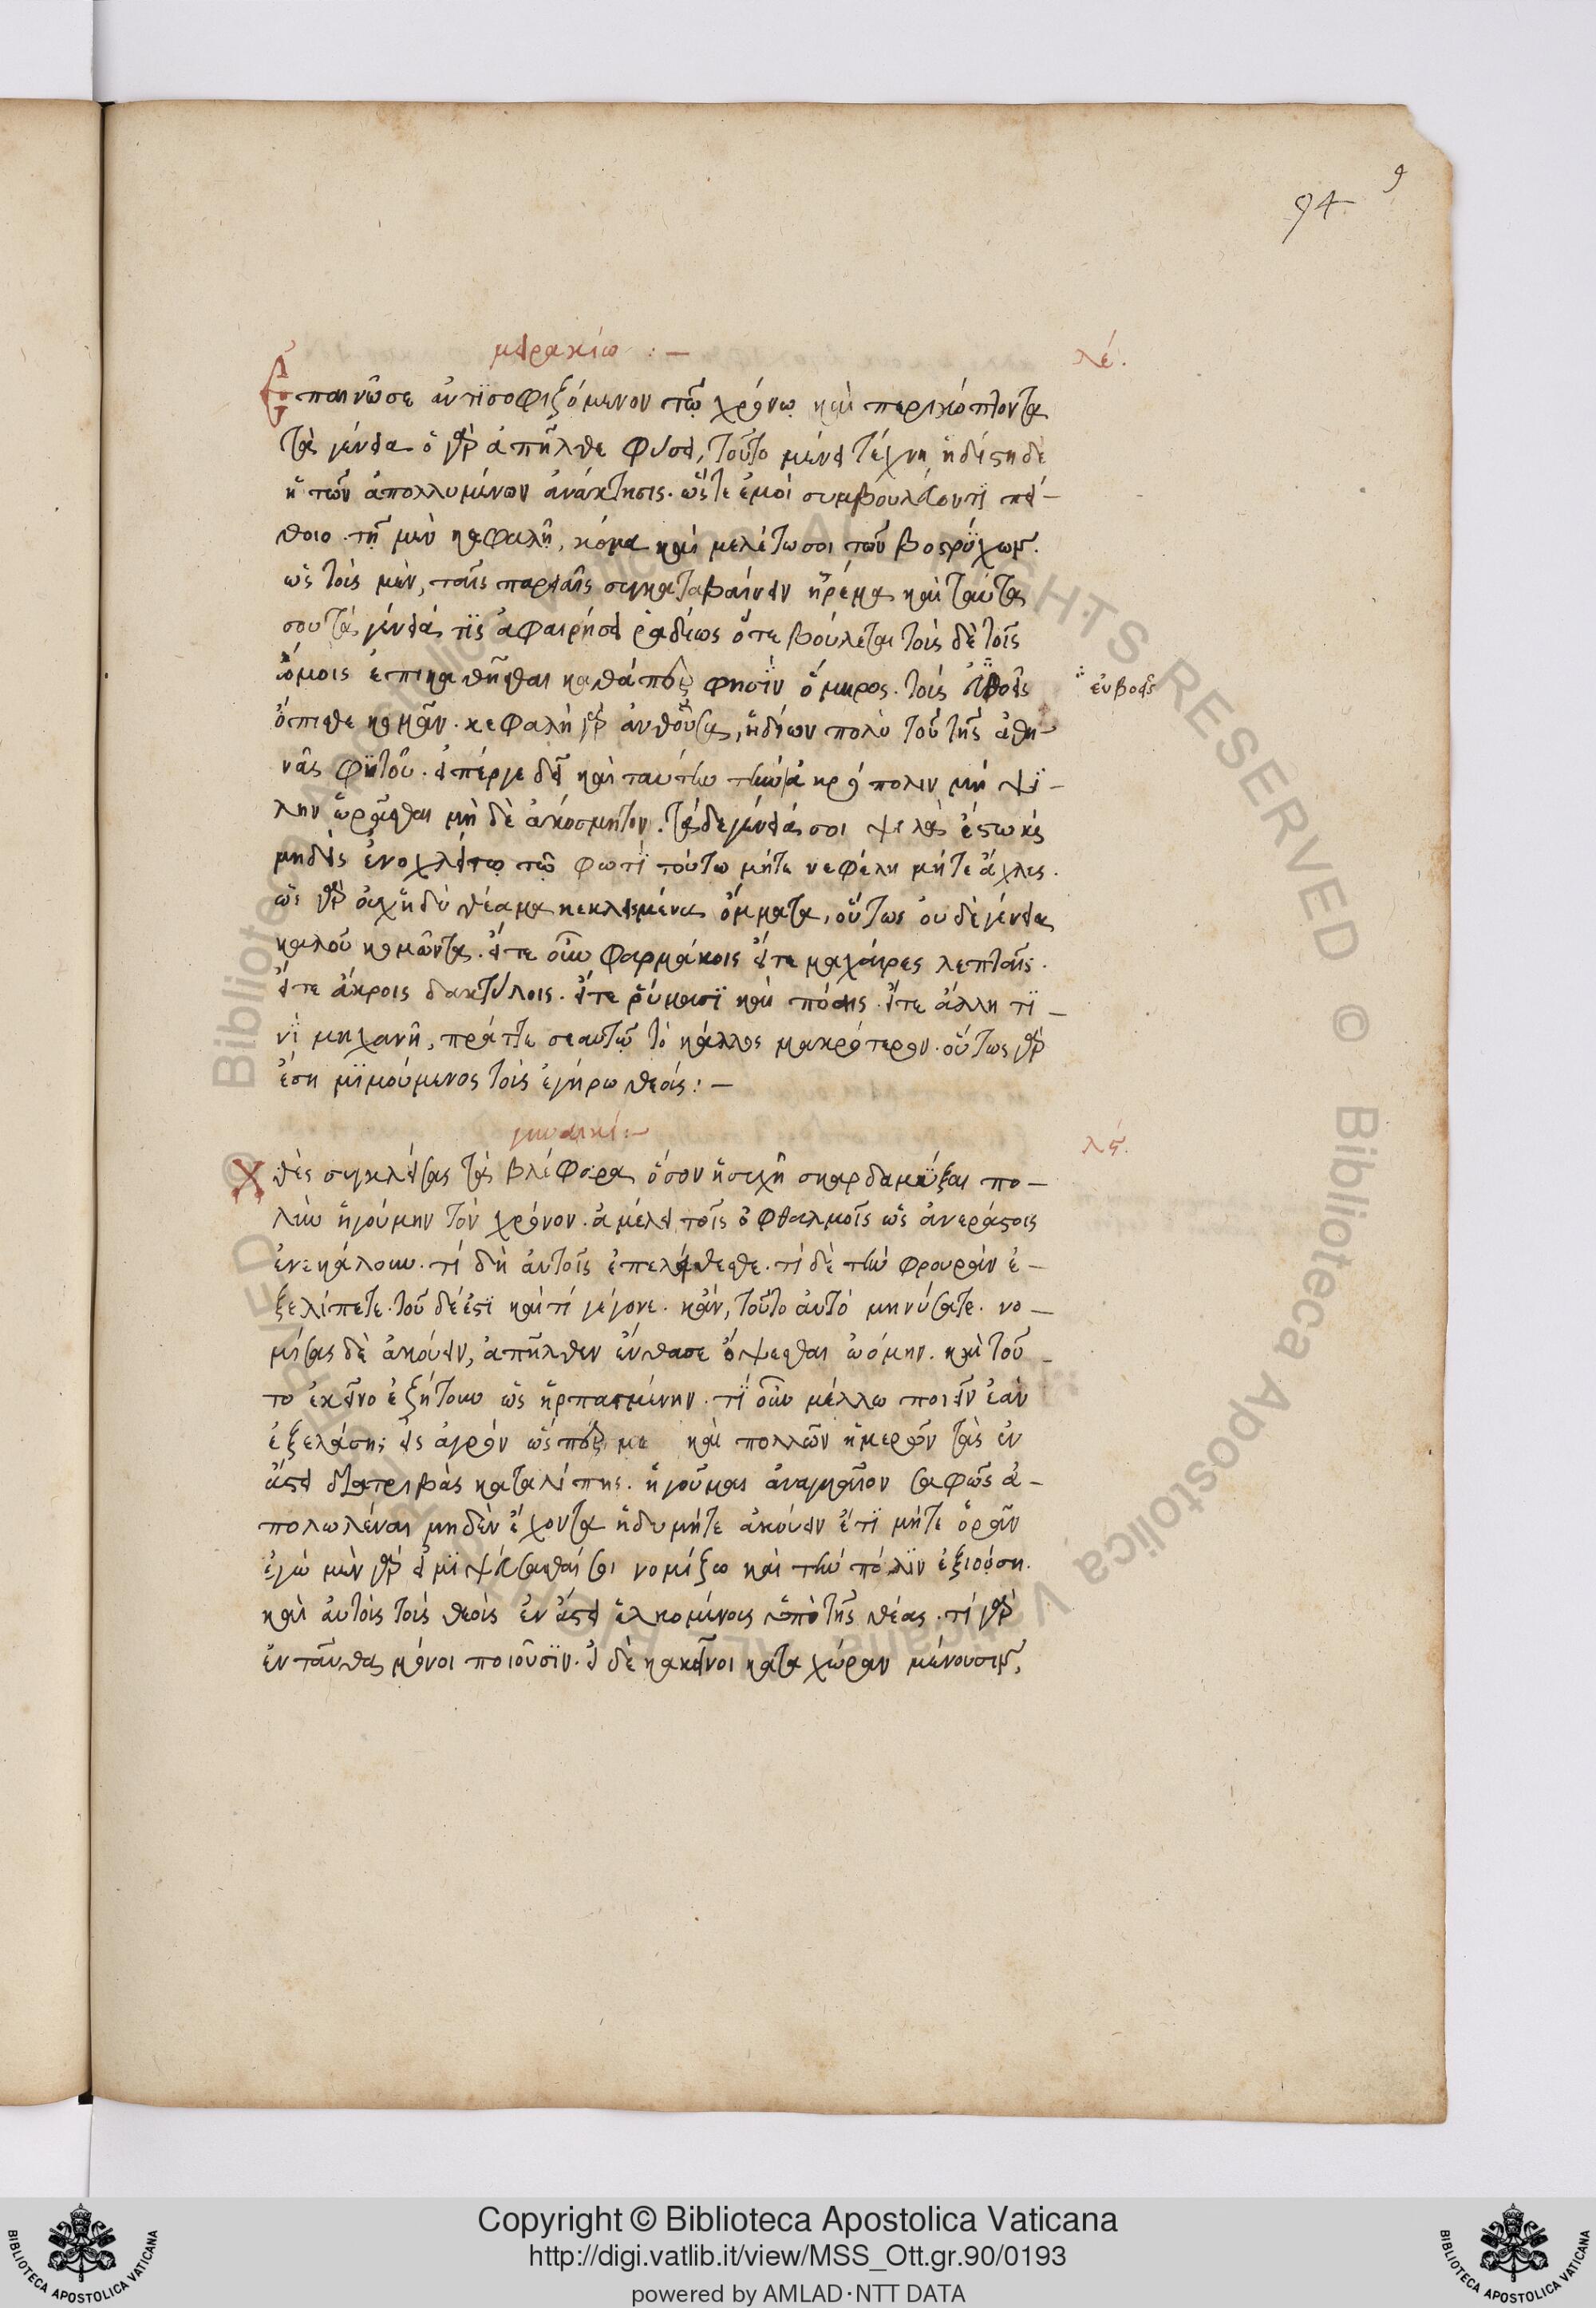 94 9
μειρακίω :— λέ.
Ἐπαινῶ σε ἀντισοφιζόμενον τῷ χρόνῳ καὶ περικόπτοντα
τὰ γένεια· ὃ γὰρ ἀπῆλθε φύσει, τοῦτο μένει τέχνη· ἡδίστη δὲ
ἡ τῶν ἀπολλυμένων ἀνάκτησις. ὥστε ἐμοὶ συμβουλεύοντι πεί-
θοιο. τῇ μὲν κεφαλῇ, κόμα καὶ μελέτω σοι τῶν βοστρύχων.
ὡς τοὺς μὲν, ταῖς παρειαῖς συγκαταβαίνειν ἠρέμα καὶ ταῦτα
σου τὰ γένειά τις ἀφαιρήσει ῥαδίως ὅτε βούλεται τοὺς δὲ τοῖς
ὤμοις ἐπικαθῆσθαι καθάπερ φησὶν ὅμηρος. τοὺς
εὐβοεῖς
ὄπισθε κομᾶν. κεφαλὴ γὰρ ἀνθοῦσα, ἡδίων πολὺ τοῦ τῆς ἀθη-
νᾶς φυτοῦ. εἴπέργε δεῖ καὶ ταύτην τὴν ἀκρόπολιν μὴ ψι-
λὴν ὁρᾶσθαι μὴ δὲ ἀκόσμητον. τὰ δὲ γένειά σοι ψιλὰ ἔστω καὶ
μηδεὶς ἐνοχλείτω τῷ φωτὶ τούτω μήτε νεφέλη μήτε ἀχλύς.
ὡς γὰρ οὐχ ἡδὺ θέαμα κεκλεισμένα ὄμματα, οὕτως οὐδὲ γένεια
καλοῦ κομῶντα. εἴτε οὖν φαρμάκοις εἴτε μαχαίραις λεπταῖς.
εἴτε ἄκροις δακτύλοις. εἴτε ῥύμασι καὶ πόαις. εἴτε ἄλλη τι-
νὶ μηχανῇ, πράττε σεαυτῷ τὸ κάλλος μακρότερον. οὕτως γὰρ
ἔση μιμούμενος τοὺς ἀγήρω θεούς :—
γυναικί :— λϛ.
Χθὲς συγκλείσας τὰ βλέφαρα ὅσον ἡσυχῇ σκαρδαμύξαι πο-
λὺν ἡγούμην τὸν χρόνον. ἀμέλει τοῖς ὀφθαλμοῖς ὡς ἀνεράστοις
ἐνεκάλουν. τί δὴ αὐτοῖς ἐπελάθεσθε. τί δὲ τὴν φρουρὰν ἐ-
ξελίπετε. τοῦ δέ ἐστι καὶ τί γέγονε. κἄν, τοῦτο αὐτὸ μηνύσατε. νο-
μίσας δὲ ἀκούειν, ἀπῆλθεν ἔνθασε ὄψεσθαι ᾠόμην. καὶ τοῦ-
το ἐκεῖνο ἐζήτουν ὡς ἡρπασμένην. τί οὖν μέλλω ποιεῖν ἐὰν
ἐξελάσης εἰς ἀγρὸν ὥσπερ με καὶ πολλῶν ἡμερῶν τὰς ἐν
ἄστει διατριβὰς καταλίπης. ἡγοῦμαι ἀναγκαῖον σαφῶς ἀ-
πολωλέναι μηδὲν ἔχοντα ἡδὺ μήτε ἀκούειν ἔτι μήτε ὁρᾶν
ἐγὼ μὲν γὰρ εἰ μὴ ψεύσασθαί σοι νομίζω καὶ τὴν πόλιν ἐξιούση.
καὶ αὐτοὺς τοὺς θεοὺς ἐν ἄστει ἑλκομένοις ὑπὸ τῆς θέας. τί γὰρ
ἐνταῦθα μόνοι ποιοῦσιν. εἰ δὲ κακεῖνοι κατὰ χώραν μένουσιν,
Copyright © Biblioteca Apostolica Vaticana
http://digi.vatlib.it/view/MSS_Ott.gr.90/0193
powered by AMLAD·NTT DATA